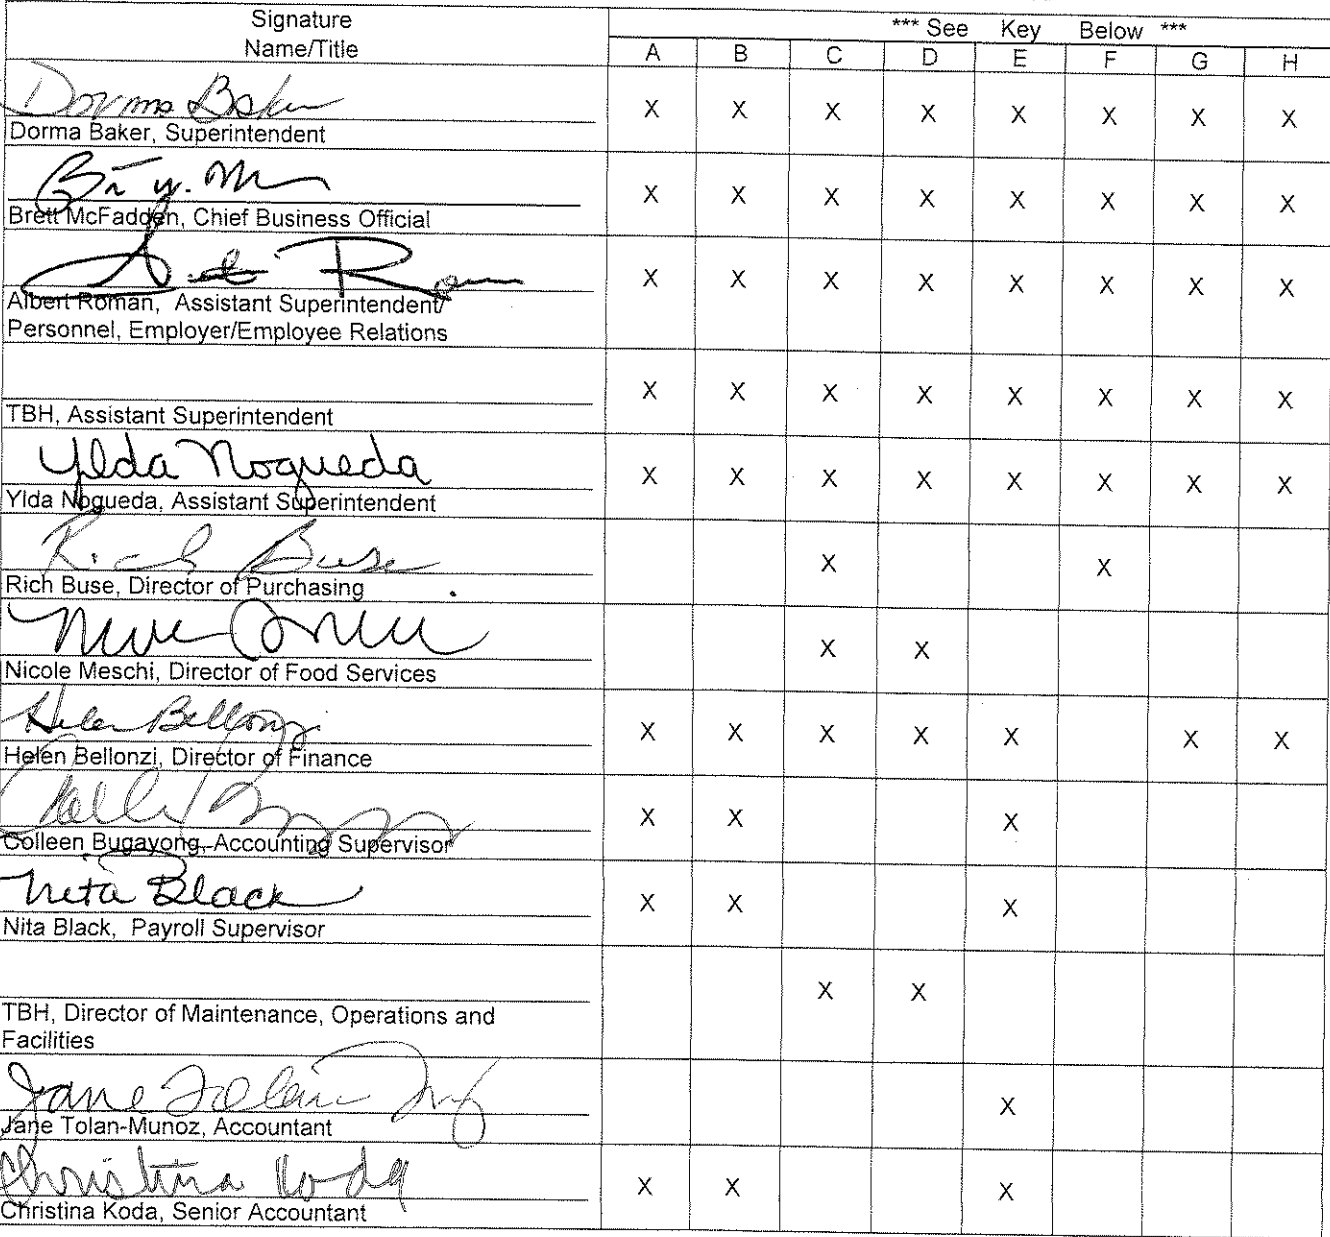 Signature
Name/Title
*** See Key Below ***
A B C D E F G H
Dorma Baker X X X X X X X X
Dorma Baker, Superintendent
X X X X X X X X
Brett McFadden, Chief Business Official
X X X X X X X X
Albert Roman, Assistant Superintendent/
Personnel, Employer/Employee Relations
X X X X X X X X
TBH, Assistant Superintendent
Ylda Nogueda X X X X X X X X
Ylda Nogueda, Assistant Superintendent
Rich Buse X X
Rich Buse, Director of Purchasing
X X
Nicole Meschi, Director of Food Services
Helen Bellonzi X X X X X X X
Helen Bellonzi, Director of Finance
X X X
Colleen Bugayong, Accounting Supervisor
Nita Black X X X
Nita Black, Payroll Supervisor
X X
TBH, Director of Maintenance, Operations and
Facilities
Jane Tolan X
Jane Tolan-Munoz, Accountant
Christina Koda X X X
Christina Koda, Senior Accountant